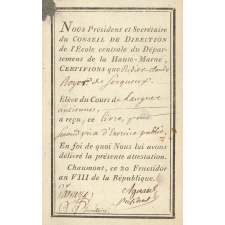 Nous Président et Secrétaire
du CONSEIL DE DIRECTION
de l'École centrale du Dépar-
tement de la Haute-Marne,
CERTIFIONS que Didier claude
Royer de
Elève du Cours de Langues
anciennes,
a reçu, ce livre, pour
second prix d'exercice public
En foi de quoi Nous lui avons
délivré la présente attestation.
Chaumont, ce 20 Fructidor
an VIII de la République.
président